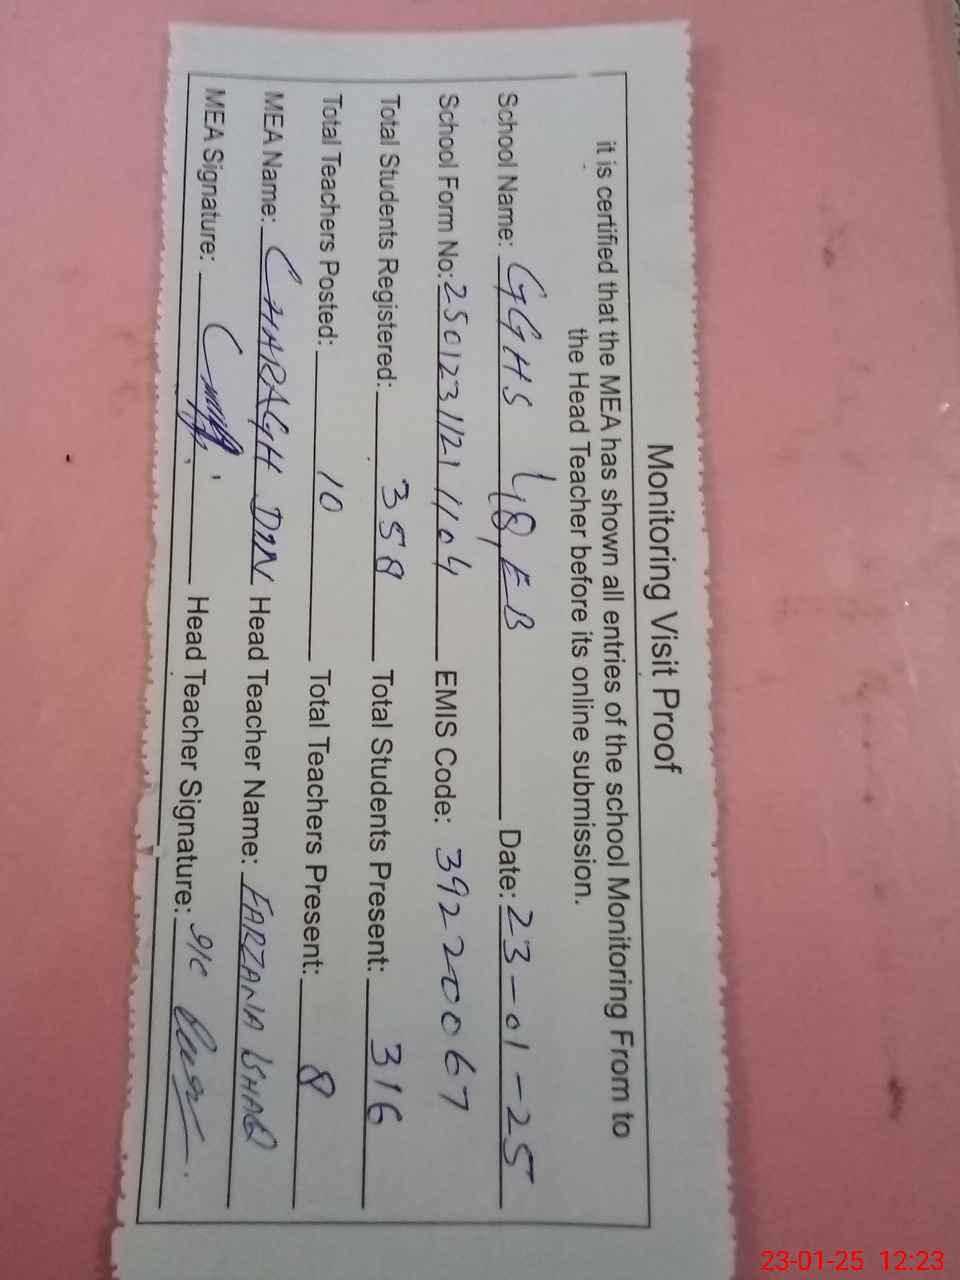 Monitoring Visit Proof
it is certified that the MEA has shown all entries of the school Monitoring From to
the Head Teacher before its online submission.
School Name: GGHS 48, EB Date: 23-01-25
School Form No: 250123112 1104 EMIS Code: 39220067
Total Students Registered: 358 Total Students Present: 316
Total Teachers Posted: 10 Total Teachers Present: 8
MEA Name: CHIARAGH DIN Head Teacher Name: FARZANA ISHAQ
MEA Signature: Head Teacher Signature:
23-01-25 12:23